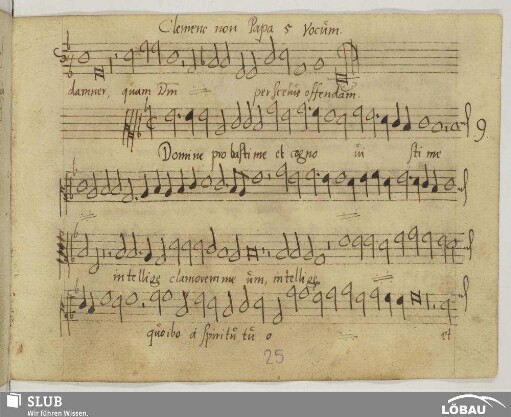 Clemens non Papa 5 Vocum.
damner, quam Dm per scelus offendam.
9
Domine probasti me et cogno vi sti me
intellige clamorem me um, intellige
quo ibo á spiritu tu o et
25
SLUB
Wir führen Wissen.
LÖBAU